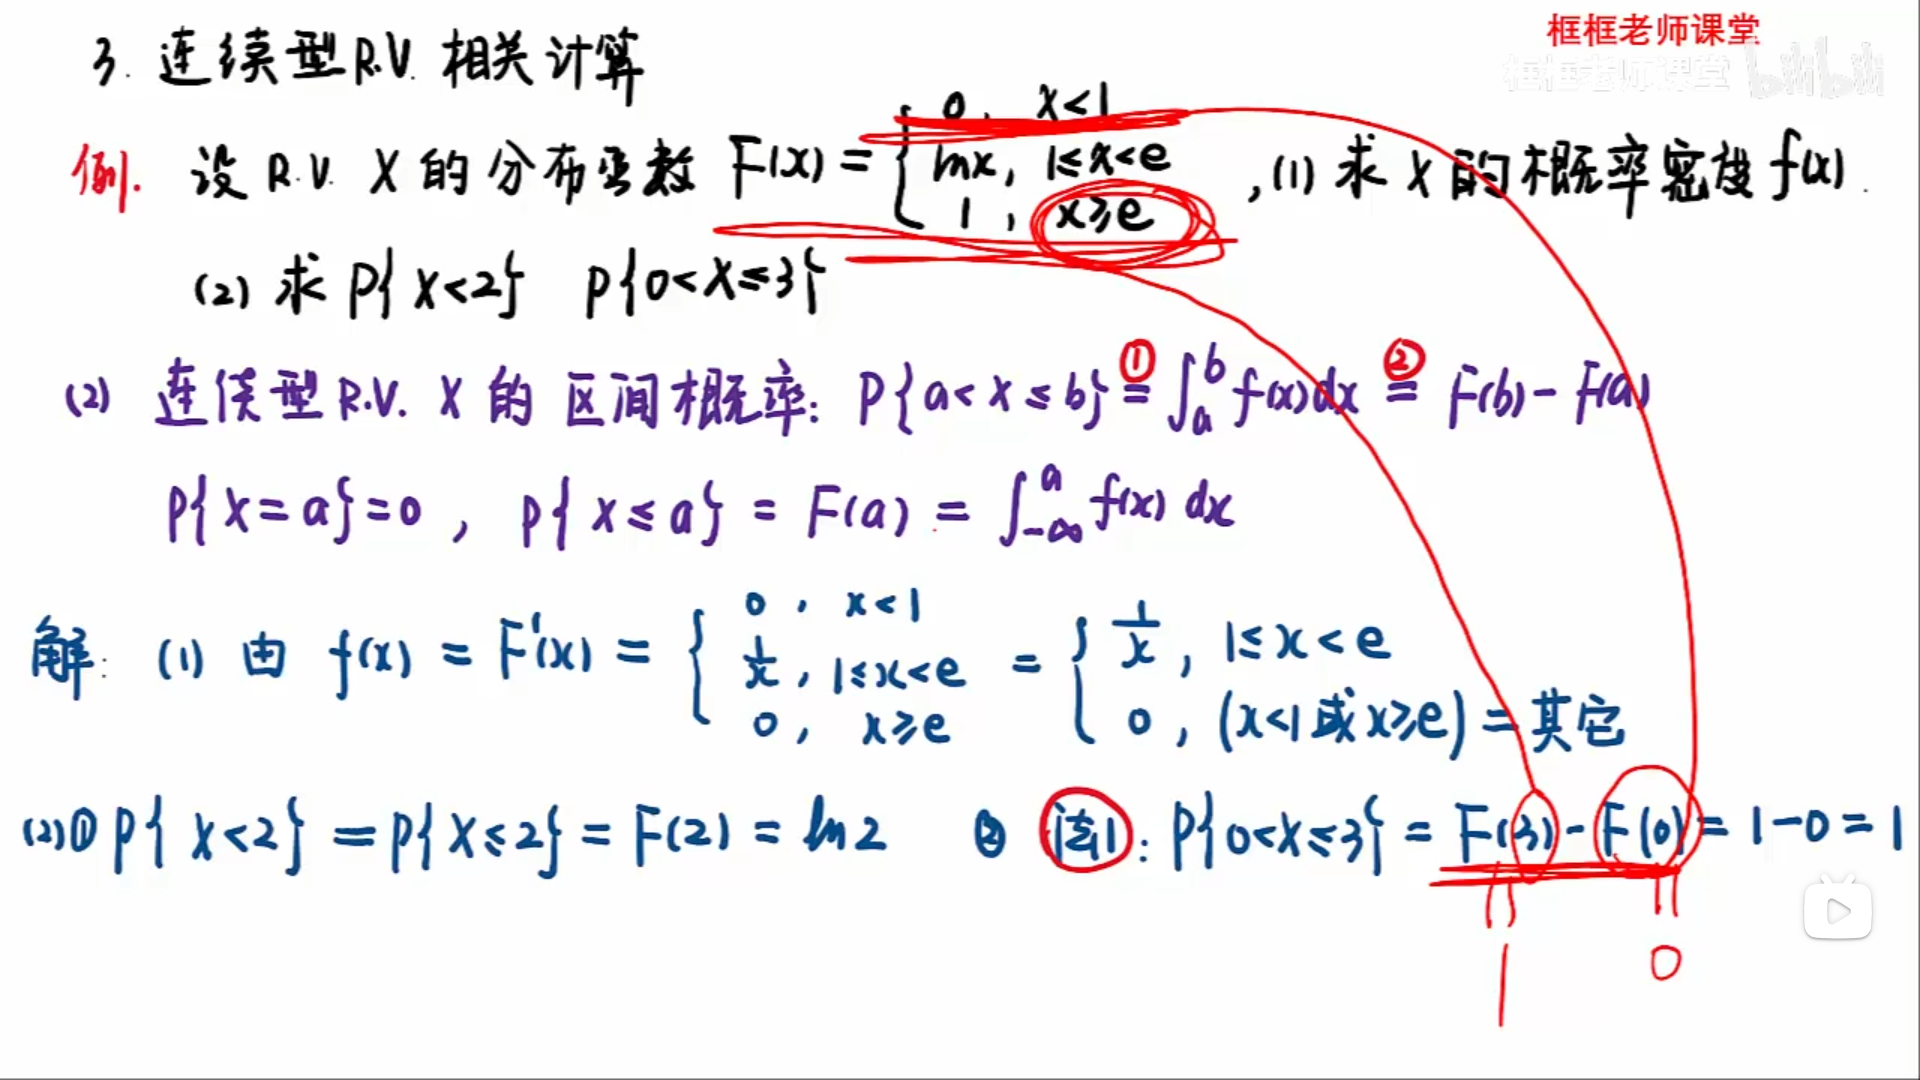 框框老师课堂
框框老师课堂 bilibili
3. 连续型R.V. 相关计算
例. 设 R.V. X 的分布函数 F(x) = { 0, x<1
lnx, 1≤x<e
1, x≥e
,(1) 求 X 的概率密度 f(x).
(2) 求 P{X<2} P{0<X≤3}
(2) 连续型R.V. X 的 区间概率: P{a<X≤b} ①= ∫_a^b f(x)dx ②= F(b)-F(a)
P{X=a}=0, P{X≤a} = F(a) = ∫_{-∞}^a f(x) dx
解: (1) 由 f(x) = F'(x) = { 0, x<1
1/x, 1≤x<e
0, x≥e
= { 1/x, 1≤x<e
0, (x<1或x≥e) = 其它
(2)① P{X<2} = P{X≤2} = F(2) = ln2 ② 法1: P{0<X≤3} = F(3)-F(0) = 1-0 = 1
1 0